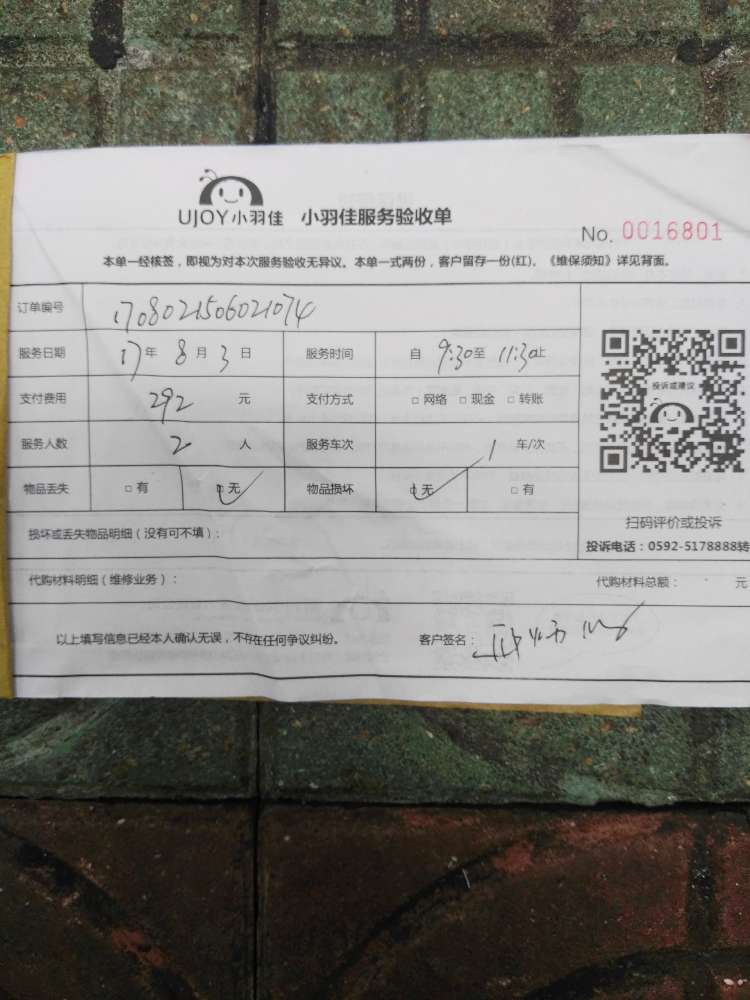 UJOY小羽佳 小羽佳服务验收单
No. 0016801
本单一经核签，即视为对本次服务验收无异议。本单一式两份，客户留存一份(红)、《维保须知》详见背面。
订单编号 1708021506021074
服务日期 17年 8月 3日 服务时间 自 9:30至 11:30止
支付费用 292 元 支付方式 □ 网络 □ 现金 □ 转账
服务人数 2 人 服务车次 1 车/次
物品丢失 □ 有 □ 无 物品损坏 □ 无 □ 有
投诉或建议
扫码评价或投诉
投诉电话：0592-5178888转
损坏或丢失物品明细（没有可不填）：
代购材料明细（维修业务）： 代购材料总额： 元
以上填写信息已经本人确认无误，不存在任何争议纠纷。 客户签名：